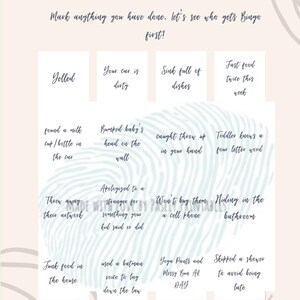 Mark anything you have done. Let's see who gets Bingo
first!
Yelled
Your car is
dirty
Sink full of
dishes
Fast food
twice this
week
found a milk
cup/bottle in
the car
Bumped baby's
head on the
wall
caught throw up
in your hand
Toddler knows a
four letter word
Throw away
their artwork
Apologised to a
stranger for
something your
kid said or did
Won't buy them
a cell phone
Hiding in the
bathroom
MADE WITH LOVE BY
Junk food in
the house
used a batman
voice to lay
down the law
Yoga Pants and
Messy Bun All
DAY
Skipped a shower
to avoid being
late